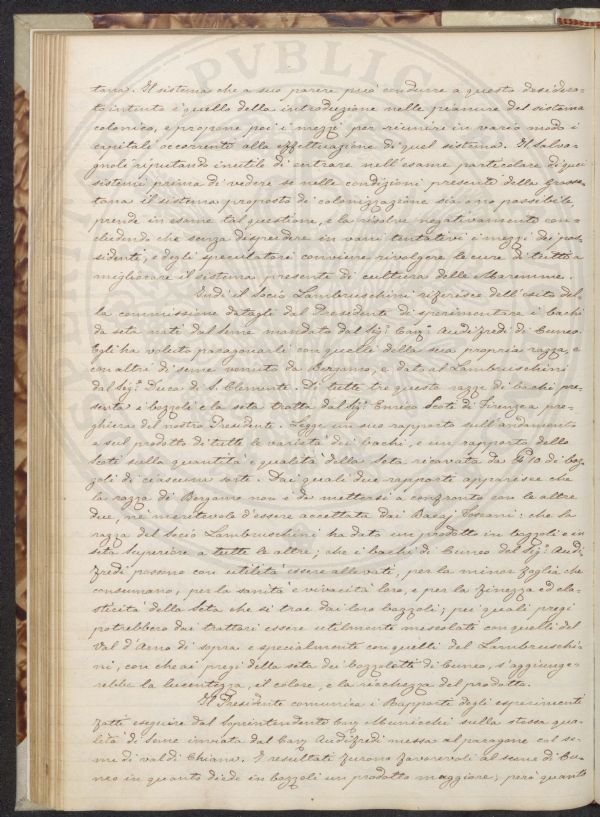 tana. Il sistema che a suo parere può condurre a questo desidera-
to intento è quello della introduzione nelle pianure del sistema
colonico, e propone poi i mezzi per riunire in vario modo i
capitali occorrenti alla effettuazione di quel sistema. Il Salva-
gnoli riputando inutile di entrare nell'esame particolare di quei
sistemi prima di vedere se nelle condizioni presenti della Grosse-
tana il sistema proposto di colonizzazione sia o no possibile
prende in esame tal questione, e la risolve negativamente con-
cludendo che senza disperdere in vani tentativi i mezzi dei pos-
sidenti, e degli speculatori conviene rivolgere le cure di tutti a
migliorare il sistema presente di cultura delle Maremme.
Indi il Socio Lambruschini riferisce dell'esito del-
la commissione datagli dal Presidente di sperimentare i bachi
da seta nati dal seme mandato dal Sig.r Cav.r Audifredi di Cuneo.
Egli ha voluto paragonarli con quelli della sua propria razza, e
con altri di seme venuto da Bergamo, e dato al Lambruschini
dal Sig.r Duca di S. Clemente. Di tutte tre queste razze di bachi pre-
senta i bozzoli e la seta tratta dal Sig.r Enrico Scoti di Firenze a pre-
ghiera del nostro Presidente. Legge un suo rapporto sull'andamento
e sul prodotto di tutte le varietà dei bachi, e un rapporto dello
Scoti sulla quantità e qualità della Seta ricavata da 10 di boz-
zoli di ciascuna sorte. Dai quali due rapporti apparisce che
la razza di Bergamo non è da mettersi a confronto con le altre
due, nè meritevole d'essere accettata dai Bacaj Toscani: che la
razza del Socio Lambruschini ha dato un prodotto in bozzoli e in
seta superiore a tutte le altre; che i bachi di Cuneo del Sig.r Audi-
fredi possono con utilità essere allevati, per la minor foglia che
consumano, per la sanità e vivacità loro, e per la finezza ed ela-
sticità della Seta che si trae dai loro bozzoli; pei quali pregi
potrebbero dai trattori essere utilmente mescolati con quelli del
Val d'Arno di sopra e specialmente con quelli del Lambruschi-
ni, con che ai pregi della seta dei Bozzoletti di Cuneo, s'aggiunge-
rebbe la lucentezza, il colore, e la ricchezza del prodotto.
Il Presidente comunica i Rapporti degli esperimenti
fatti eseguire dal Soprintendente Cav. sulla stessa qua-
lità di seme inviata dal Cav. Audifredi messa al paragone col se-
me di Val di Chiana. I resultati furono favorevoli al seme di Cu-
neo in quanto diede in bozzoli un prodotto maggiore; però quanto